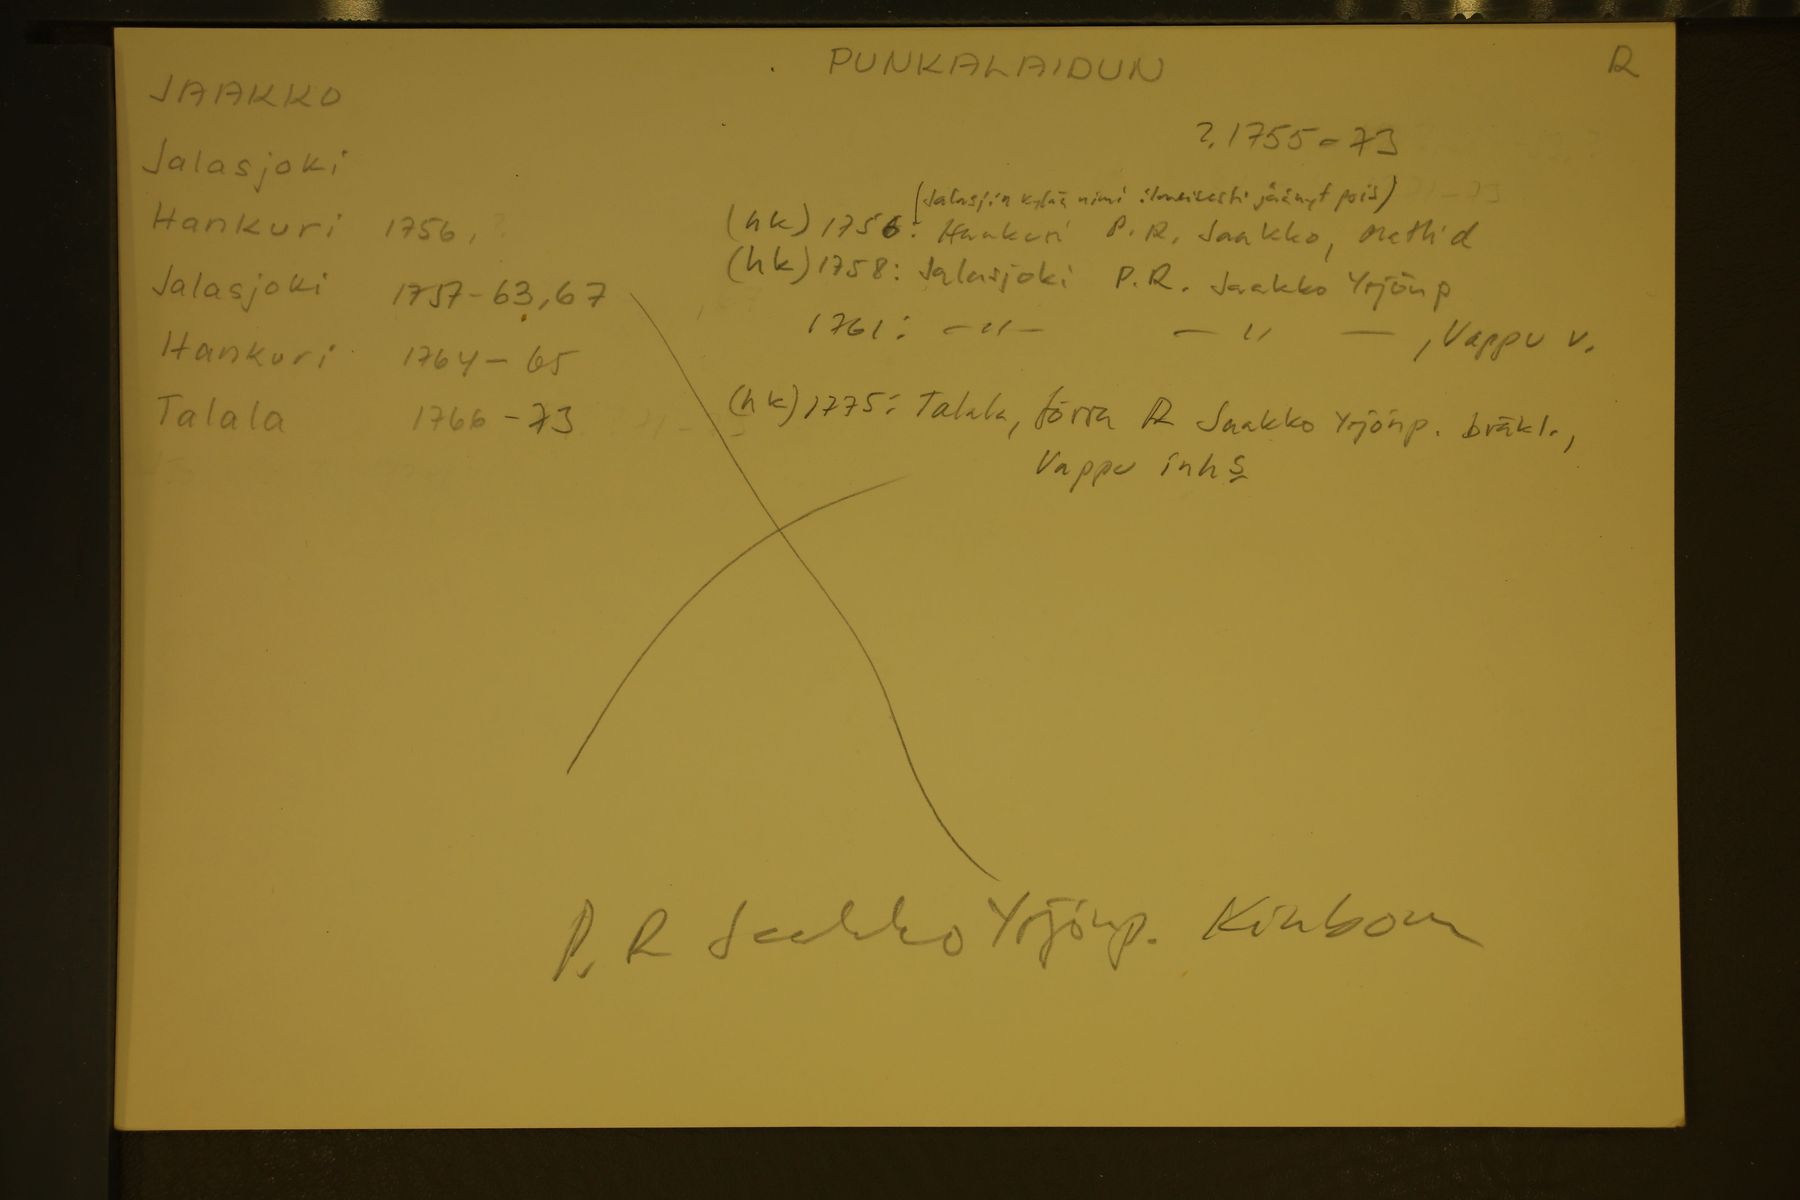 PUNKALAIDUN R
JAAKKO
?, 1755-73
Jalasjoki
(Jalasj:n kylän nimi ilmeisesti jäänyt pois)
Hankuri 1756, ?
(hk) 1756: Hankuri P.R. Jaakko,
(hk) 1758: Jalasjoki P.R. Jaakko Yrjönp
Jalasjoki 1757-63, 67
1761: -"- - " - , Vappu v.
Hankuri 1764-65
(hk) 1775: Talala, förra R Jaakko Yrjönp. bräkl.,
Talala 1766-73
Vappu inhs
P. R Jaakko Yrjönp. Kinbom